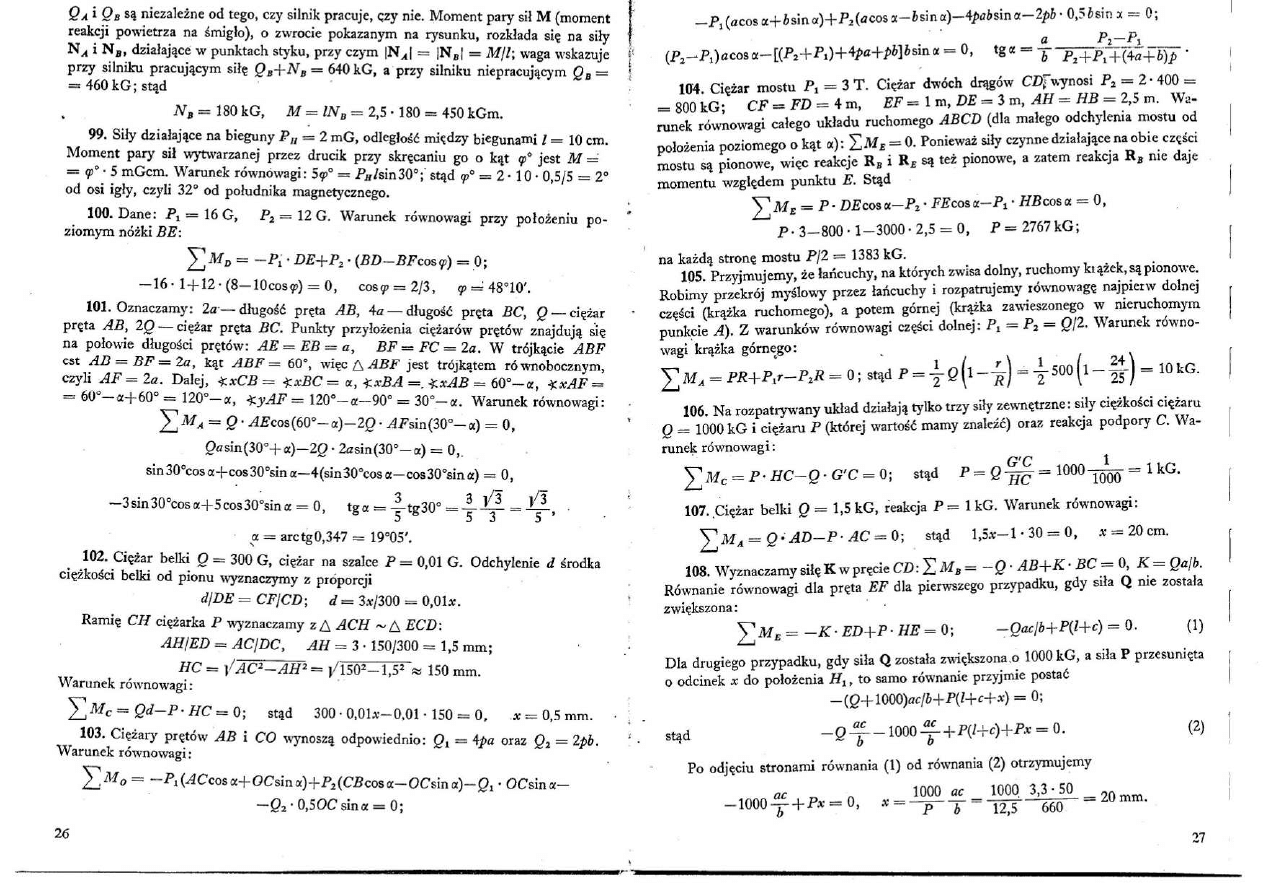 Q_A i Q_B są niezależne od tego, czy silnik pracuje, czy nie. Moment pary sił M (moment
reakcji powietrza na śmigło), o zwrocie pokazanym na rysunku, rozkłada się na siły
N_A i N_B, działające w punktach styku, przy czym |N_A| = |N_B| = M/l; waga wskazuje
przy silniku pracującym siłę Q_B+N_B = 640 kG, a przy silniku niepracującym Q_B =
= 460 kG; stąd
N_B = 180 kG, M = lN_B = 2,5 · 180 = 450 kGm.
99. Siły działające na bieguny P_H = 2 mG, odległość między biegunami l = 10 cm.
Moment pary sił wytwarzanej przez drucik przy skręcaniu go o kąt φ° jest M =
= φ° · 5 mGcm. Warunek równowagi: 5φ° = P_H l sin 30°; stąd φ° = 2 · 10 · 0,5/5 = 2°
od osi igły, czyli 32° od południka magnetycznego.
100. Dane: P₁ = 16 G, P₂ = 12 G. Warunek równowagi przy położeniu po-
ziomym nóżki BE:
∑M_D = −P₁ · DE+P₂ · (BD−BF cos φ) = 0;
−16 · 1+12 · (8−10cos φ) = 0, cos φ = 2/3, φ = 48°10'.
101. Oznaczamy: 2a — długość pręta AB, 4a — długość pręta BC, Q — ciężar
pręta AB, 2Q — ciężar pręta BC. Punkty przyłożenia ciężarów prętów znajdują się
na połowie długości prętów: AE = EB = a, BF = FC = 2a. W trójkącie ABF
est AB = BF = 2a, kąt ABF = 60°, więc △ ABF jest trójkątem równobocznym,
czyli AF = 2a. Dalej, ∢xCB = ∢xBC = α, ∢xBA = ∢xAB = 60°−α, ∢xAF =
= 60°−α+60° = 120°−α, ∢yAF = 120°−α−90° = 30°−α. Warunek równowagi:
∑M_A = Q · AE cos(60°−α)−2Q · AF sin(30°−α) = 0,
Qa sin(30°+α)−2Q · 2a sin(30°−α) = 0,
sin 30°cos α+cos 30°sin α−4(sin 30°cos α−cos 30°sin α) = 0,
−3 sin 30°cos α+5 cos 30°sin α = 0, tg α = 3/5 tg 30° = 3/5 √3/3 = √3/5,
α = arc tg 0,347 = 19°05'.
102. Ciężar belki Q = 300 G, ciężar na szalce P = 0,01 G. Odchylenie d środka
ciężkości belki od pionu wyznaczymy z proporcji
d/DE = CF/CD; d = 3x/300 = 0,01x.
Ramię CH ciężarka P wyznaczamy z △ ACH ~ △ ECD:
AH/ED = AC/DC, AH = 3 · 150/300 = 1,5 mm;
HC = √(AC²−AH²) = √(150²−1,5²) ≈ 150 mm.
Warunek równowagi:
∑M_C = Qd−P · HC = 0; stąd 300 · 0,01x−0,01 · 150 = 0, x = 0,5 mm.
103. Ciężary prętów AB i CO wynoszą odpowiednio: Q₁ = 4pa oraz Q₂ = 2pb.
Warunek równowagi:
∑M_O = −P₁(AC cos α+OC sin α)+P₂(CB cos α−OC sin α)−Q₁ · OC sin α−
−Q₂ · 0,5OC sin α = 0;
26
−P₁(a cos α+b sin α)+P₂(a cos α−b sin α)−4pab sin α−2pb · 0,5b sin α = 0;
(P₂−P₁)a cos α−[(P₂+P₁)+4pa+pb]b sin α = 0, tg α = a/b (P₂−P₁)/(P₂+P₁+(4a+b)p).
104. Ciężar mostu P₁ = 3 T. Ciężar dwóch drągów CD wynosi P₂ = 2 · 400 =
= 800 kG; CF = FD = 4 m, EF = 1 m, DE = 3 m, AH = HB = 2,5 m. Wa-
runek równowagi całego układu ruchomego ABCD (dla małego odchylenia mostu od
położenia poziomego o kąt α): ∑M_E = 0. Ponieważ siły czynne działające na obie części
mostu są pionowe, więc reakcje R_B i R_E są też pionowe, a zatem reakcja R_B nie daje
momentu względem punktu E. Stąd
∑M_E = P · DE cos α−P₂ · FE cos α−P₁ · HB cos α = 0,
P · 3−800 · 1−3000 · 2,5 = 0, P = 2767 kG;
na każdą stronę mostu P/2 = 1383 kG.
105. Przyjmujemy, że łańcuchy, na których zwisa dolny, ruchomy krążek, są pionowe.
Robimy przekrój myślowy przez łańcuchy i rozpatrujemy równowagę najpierw dolnej
części (krążka ruchomego), a potem górnej (krążka zawieszonego w nieruchomym
punkcie A). Z warunków równowagi części dolnej: P₁ = P₂ = Q/2. Warunek równo-
wagi krążka górnego:
∑M_A = PR+P₁r−P₂R = 0; stąd P = 1/2 Q(1−r/R) = 1/2 500(1−24/25) = 10 kG.
106. Na rozpatrywany układ działają tylko trzy siły zewnętrzne: siły ciężkości ciężaru
Q = 1000 kG i ciężaru P (której wartość mamy znaleźć) oraz reakcja podpory C. Wa-
runek równowagi:
∑M_C = P · HC−Q · G'C = 0; stąd P = Q G'C/HC = 1000 1/1000 = 1 kG.
107. Ciężar belki Q = 1,5 kG, reakcja P = 1 kG. Warunek równowagi:
∑M_A = Q · AD−P · AC = 0; stąd 1,5x−1 · 30 = 0, x = 20 cm.
108. Wyznaczamy siłę K w pręcie CD: ∑M_B = −Q · AB+K · BC = 0, K = Qa/b.
Równanie równowagi dla pręta EF dla pierwszego przypadku, gdy siła Q nie została
zwiększona:
∑M_E = −K · ED+P · HE = 0; −Qac/b+P(l+c) = 0. (1)
Dla drugiego przypadku, gdy siła Q została zwiększona o 1000 kG, a siła P przesunięta
o odcinek x do położenia H₁, to samo równanie przyjmie postać
−(Q+1000)ac/b+P(l+c+x) = 0;
stąd −Q ac/b−1000 ac/b+P(l+c)+Px = 0. (2)
Po odjęciu stronami równania (1) od równania (2) otrzymujemy
−1000 ac/b+Px = 0, x = 1000/P ac/b = 1000/12,5 3,3 · 50/660 = 20 mm.
27